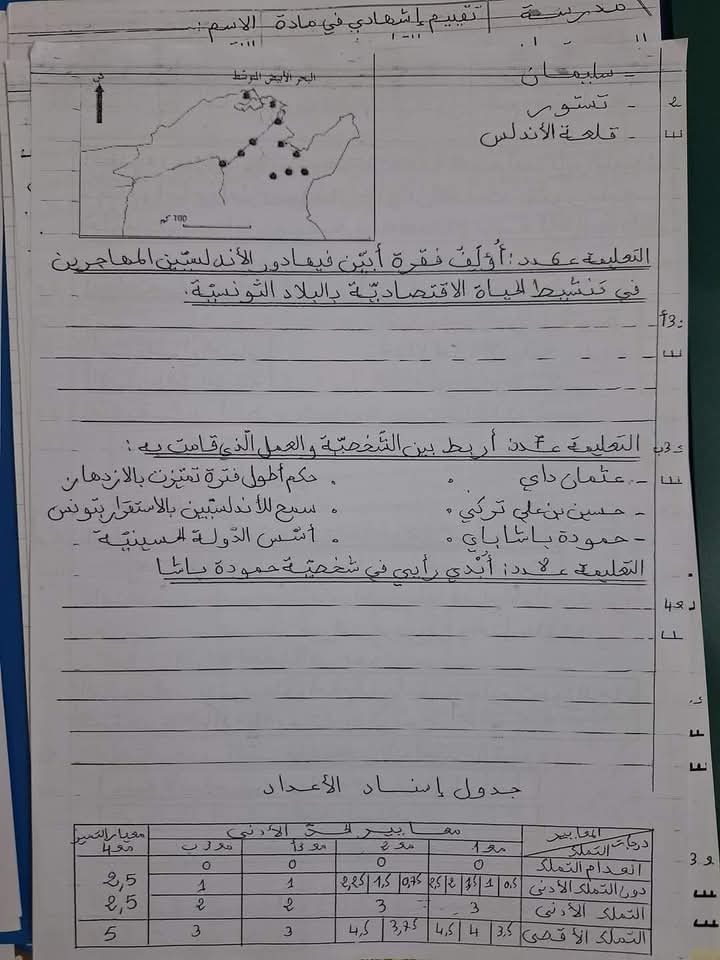 مدرسة
تقييم إشهادي في مادة
الاسم:
البحر الأبيض المتوسط
100 كم
- سليمان
- تستور
- قلعة الأندلس
التعليمة عـ6ـدد: أُؤَلِّفُ فقرة أبيّن فيها دور الأندلسيّين المهاجرين
في تنشيط الحياة الاقتصاديّة بالبلاد التونسيّة.
التعليمة عـ7ـدد: أربط بين الشّخصيّة والعمل الّذي قامت به:
- عثمان داي • • حكم أطول فترة تميّزت بالازدهار
- حسين بن علي تركي • • سمح للأندلسيّين بالاستقرار بتونس
- حمودة باشا باي • • أسّس الدّولة الحسينيّة
التعليمة عـ8ـدد: أُبْدي رأيي في شخصيّة حمودة باشا
جدول إسناد الأعداد
المعايير
درجات التملك
معايير الحد الأدنى
معيار التميز
مع 1
مع 2
مع 3أ
مع 3ب
مع 4
انعدام التملك 0 0 0 0
دون التملك الأدنى 0,5 1 1,5 2 2,5 0,75 1,5 2,25 1 1 2,5
التملك الأدنى 3 3 2 2 2,5
التملك الأقصى 3,5 4 4,5 3,75 4,5 3 3 5